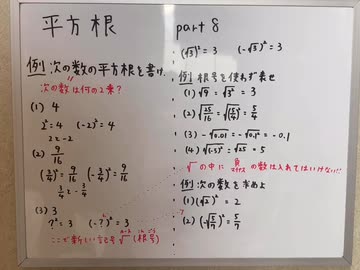 平方根 part 8
例 次の数の平方根を書け
次の数は何の2乗?
(1) 4
2²=4 (-2)²=4
2と-2
(2) 9/16
(3/4)²=9/16 (-3/4)²=9/16
3/4と-3/4
(3) 3
?²=3 (-?)²=3
ここで新しい記号√ (根号)
(√3)²=3 (-√3)²=3
例 根号を使わず表せ
(1) √9 = √3² = 3
(2) √25/16 = √(5/4)² = 5/4
(3) -√0.01 = -√0.1² = -0.1
(4) √(-5)² = √25 = 5
√の中に負の数は入れてはいけない!!
マイナス
例 次の数を求めよ
(1) (√2)² = 2
(2) (-√5/7)² = 5/7